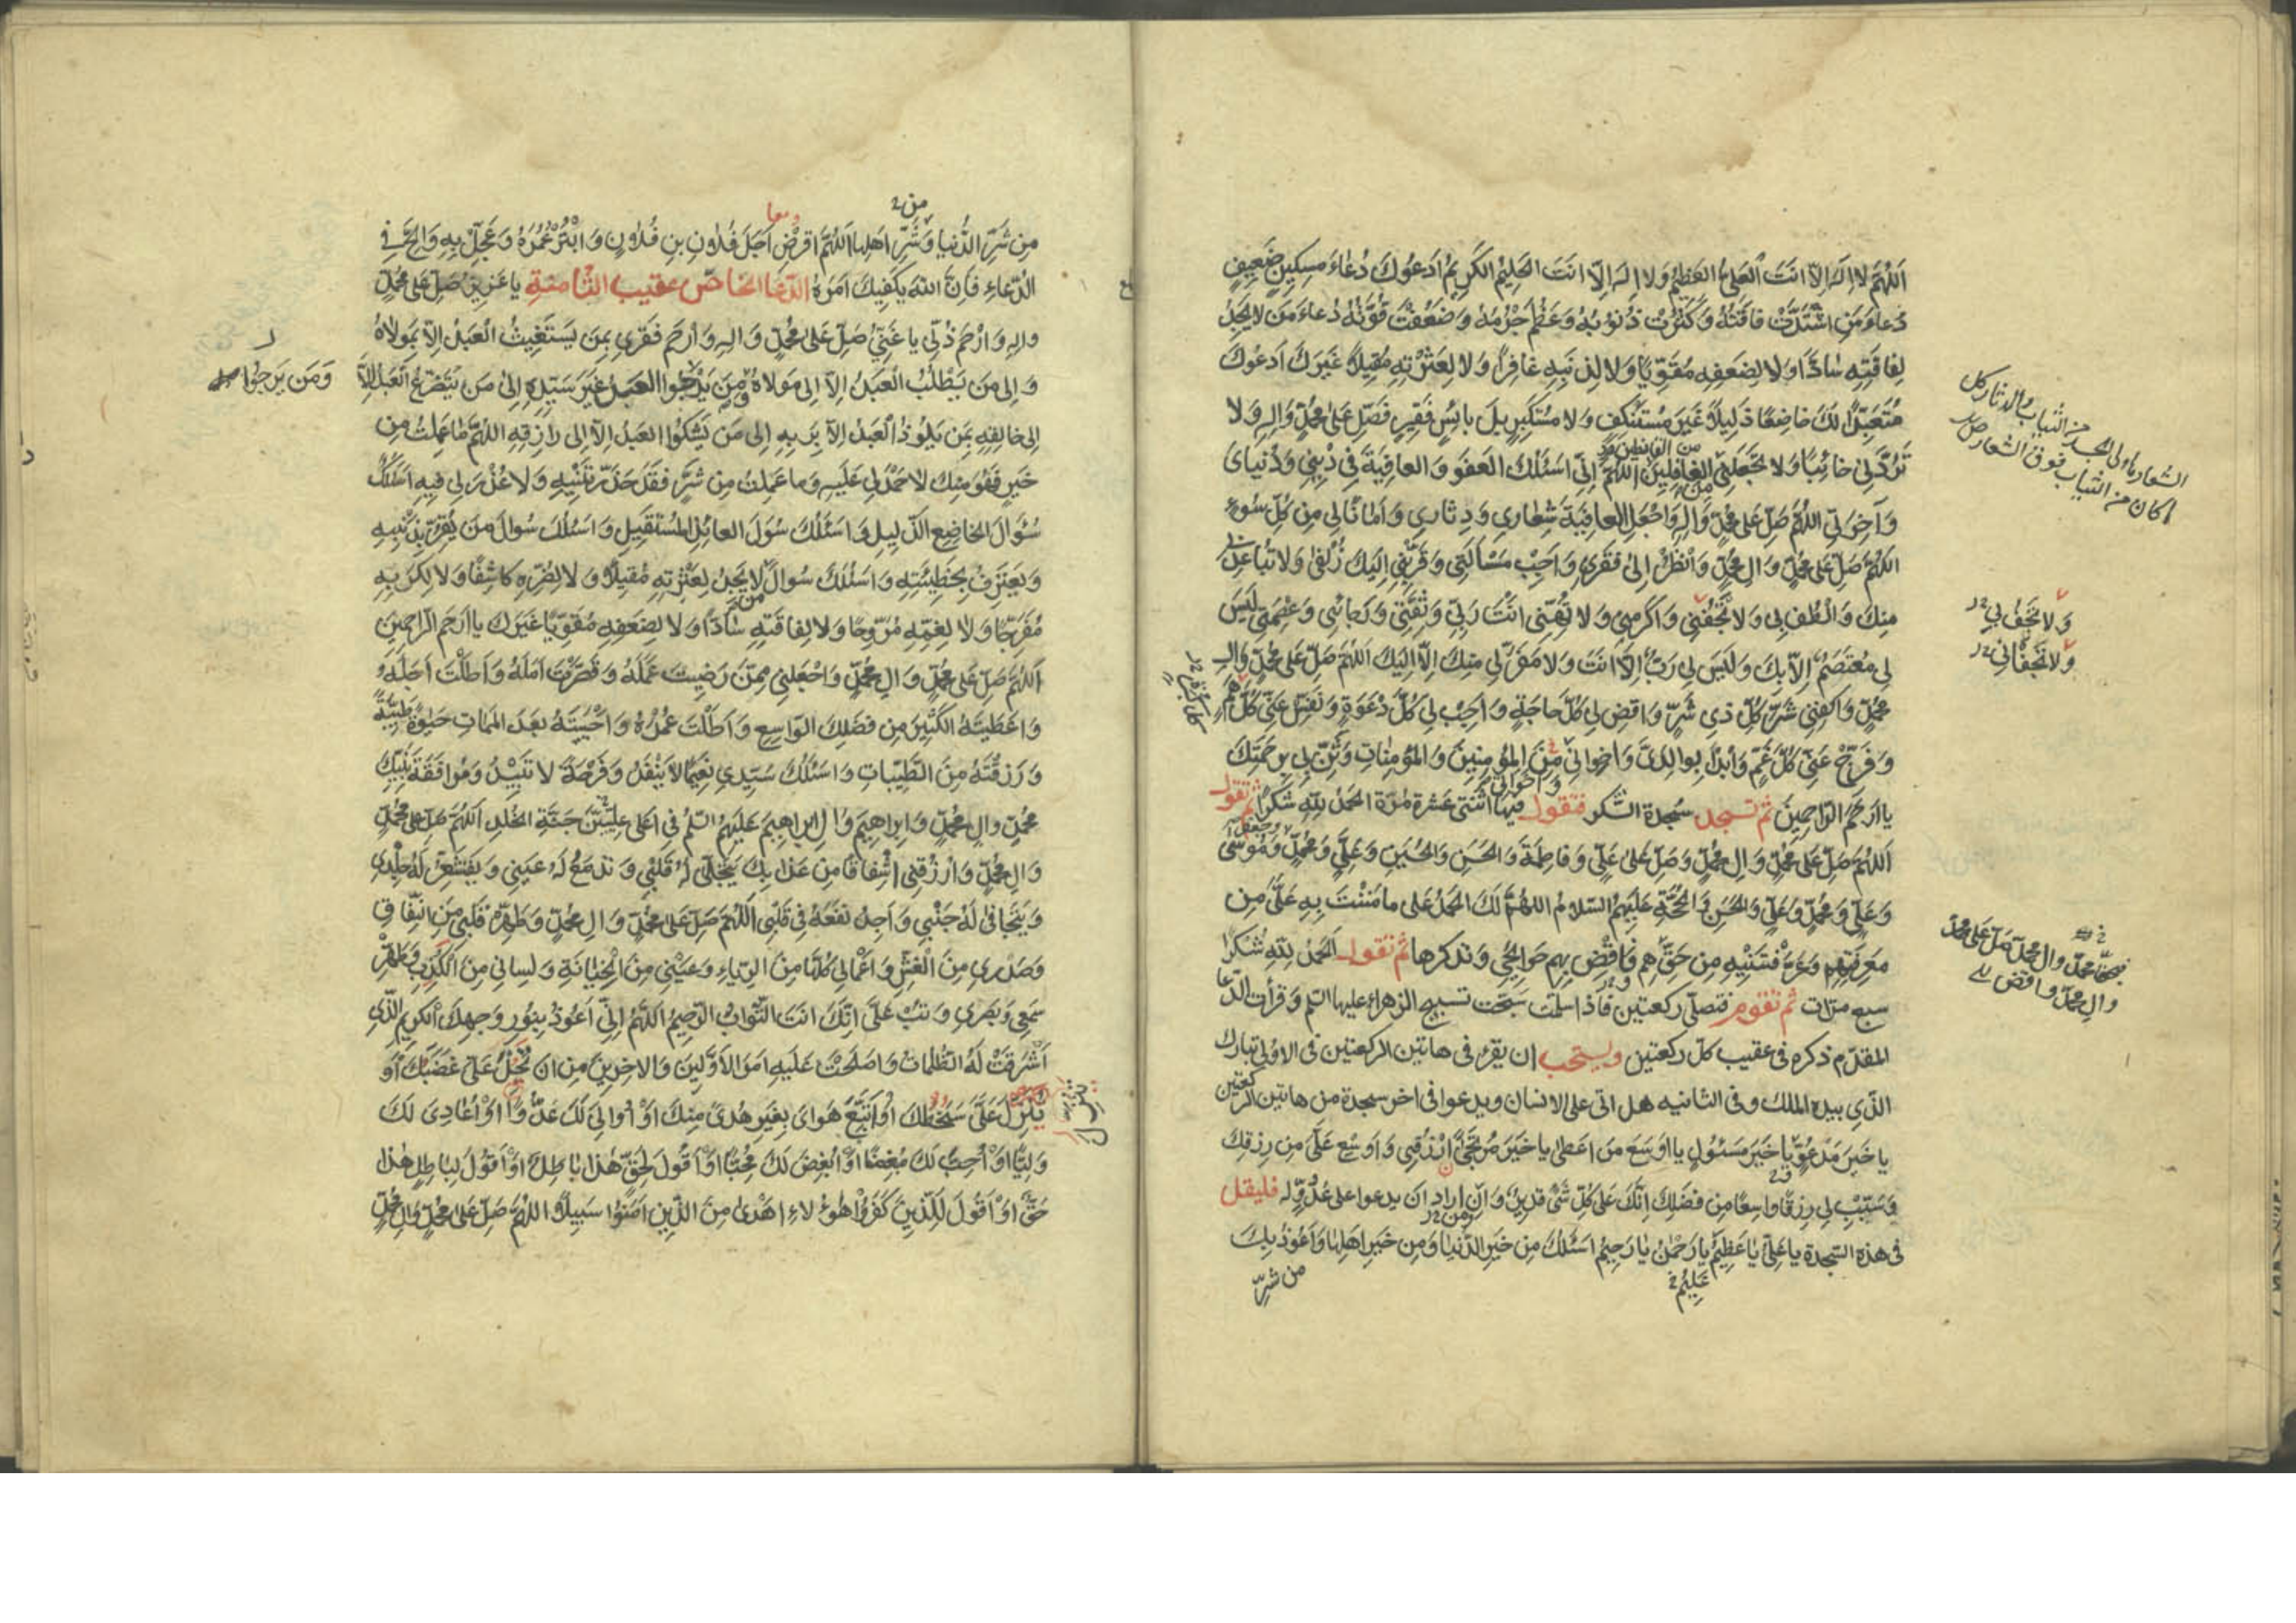 اَللّٰهُمَّ لا اِلٰهَ اِلّا اَنْتَ الْعَلِيُّ الْعَظِيمُ وَلا اِلٰهَ اِلّا اَنْتَ الْحَلِيمُ الْكَرِيمُ اَدْعُوكَ دُعاءَ مِسْكِينٍ ضَعِيفٍ
دُعاءَ مَنِ اشْتَدَّتْ فاقَتُهُ وَكَثُرَتْ ذُنُوبُهُ وَعَظُمَ جُرْمُهُ وَضَعُفَتْ قُوَّتُهُ دُعاءَ مَنْ لا يَجِدُ
لِفاقَتِهِ سادًّا وَلا لِضَعْفِهِ مُقَوِّيًا وَلا لِذَنْبِهِ غافِرًا وَلا لِعَثْرَتِهِ مُقِيلًا غَيْرَكَ اَدْعُوكَ
مُتَعَبِّدًا لَكَ خاضِعًا ذَلِيلًا غَيْرَ مُسْتَنْكِفٍ وَلا مُسْتَكْبِرٍ بَلْ بائِسٌ فَقِيرٌ فَصَلِّ عَلى مُحَمَّدٍ وَالِهِ وَلا
تَرُدَّنِي خائِبًا وَلا تَجْعَلْنِي مِنَ الْغافِلِينَ اَللّٰهُمَّ اِنِّي اَسْئَلُكَ الْعَفْوَ وَالْعافِيَةَ فِي دِينِي وَدُنْيايَ
من القانطين
وَآخِرَتِي اَللّٰهُمَّ صَلِّ عَلى مُحَمَّدٍ وَالِهِ وَاجْعَلِ الْعافِيَةَ شِعارِي وَدِثارِي وَاَمانًا لِي مِنْ كُلِّ سُوءٍ
الشعار ما ولي الجسد من الثياب والدثار كل
ما كان من الثياب فوق الشعار
اَللّٰهُمَّ صَلِّ عَلى مُحَمَّدٍ وَالِ مُحَمَّدٍ وَانْظُرْ اِلى فَقْرِي وَاَجِبْ مَسْأَلَتِي وَقَرِّبْنِي اِلَيْكَ زُلْفى وَلا تُباعِدْنِي
مِنْكَ وَالْطُفْ بِي وَلا تَجْفُنِي وَاَكْرِمْنِي وَلا تُهِنِّي اَنْتَ رَبِّي وَثِقَتِي وَرَجائِي وَعِصْمَتِي لَيْسَ
وَلا تَجْفُ بِي
وَلا تَجْفانِي
لِي مُعْتَصَمٌ اِلّا بِكَ وَلَيْسَ لِي رَبٌّ اِلّا اَنْتَ وَلا مَفَرَّ لِي مِنْكَ اِلّا اِلَيْكَ اَللّٰهُمَّ صَلِّ عَلى مُحَمَّدٍ وَالِ
مُحَمَّدٍ وَاكْفِنِي شَرَّ كُلِّ ذِي شَرٍّ وَاقْضِ لِي كُلَّ حاجَةٍ وَاَجِبْ لِي كُلَّ دَعْوَةٍ وَنَفِّسْ عَنِّي كُلَّ هَمٍّ
وَفَرِّجْ عَنِّي كُلَّ غَمٍّ وَابْدَأْ بِوالِدَيَّ وَاِخْوانِي مِنَ الْمُؤْمِنِينَ وَالْمُؤْمِناتِ وَثَنِّ بِي بِرَحْمَتِكَ
وَاَخَواتِي
يا اَرْحَمَ الرّاحِمِينَ ثم تسجد سجدة الشكر فتقول فيها اثنتي عشرة مرة الحمد لله شكرا ثم تقول
اَللّٰهُمَّ صَلِّ عَلى مُحَمَّدٍ وَالِ مُحَمَّدٍ وَصَلِّ عَلى عَلِيٍّ وَفاطِمَةَ وَالْحَسَنِ وَالْحُسَيْنِ وَعَلِيٍّ وَمُحَمَّدٍ وَجَعْفَرٍ وَمُوسى
وَعَلِيٍّ وَمُحَمَّدٍ وَعَلِيٍّ وَالْحَسَنِ وَالْحُجَّةِ عَلَيْهِمُ السَّلامُ اَللّٰهُمَّ لَكَ الْحَمْدُ عَلى ما مَنَنْتَ بِهِ عَلَيَّ مِنْ
مَعْرِفَتِهِمْ وَعَرَّفْتَنِيهِ مِنْ حَقِّهِمْ فَاقْضِ بِهِمْ حَوائِجِي وتذكرها ثم تقول اَلْحَمْدُ لِلّٰهِ شُكْرًا
فبحق محمد وال محمد صل على محمد
وال محمد واقض لي
سبع مرات ثم تقوم فتصلى ركعتين فاذا سلمت سبحت تسبيح الزهراء عليها السلم وقرأت الدعا
المقدم ذكره فى عقيب كل ركعتين ويستحب ان يقرء فى هاتين الركعتين فى الاولى تبارك
الذي بيده الملك وفى الثانيه هل اتى على الانسان ويدعوا فى اخر سجدة من هاتين الركعتين
يا خَيْرَ مَدْعُوٍّ يا خَيْرَ مَسْئُولٍ يا اَوْسَعَ مَنْ اَعْطى يا خَيْرَ مُرْتَجى اُرْزُقْنِي وَاَوْسِعْ عَلَيَّ مِنْ رِزْقِكَ
وَسَبِّبْ لِي رِزْقًا واسِعًا مِنْ فَضْلِكَ اِنَّكَ عَلى كُلِّ شَيْءٍ قَدِيرٌ وَاِنْ اراد ان يدعوا على عدوّ له فليقل
فى هذه السجدة يا عَلِيُّ يا عَظِيمُ يا رَحْمٰنُ يا رَحِيمُ اَسْئَلُكَ مِنْ خَيْرِ الدُّنْيا وَمِنْ خَيْرِ اَهْلِها وَاَعُوذُ بِكَ
من شرّ
مِنْ شَرِّ الدُّنْيا وَشَرِّ اَهْلِها اَللّٰهُمَّ اقْرِضْ اَجَلَ فُلانِ بْنِ فُلانٍ وَابْتُرْ عُمُرَهُ وَعَجِّلْ بِهِ وَاَلِحَّ فِي
الدُّعاءِ فَاِنَّ اللّٰهَ يَكْفِيكَ اَمْرَهُ الدّعا الخاصّ عقيب الثّامنة يا عَزِيزُ صَلِّ عَلى مُحَمَّدٍ
وَالِهِ وَارْحَمْ ذُلِّي يا غَنِيُّ صَلِّ عَلى مُحَمَّدٍ وَالِهِ وَارْحَمْ فَقْرِي بِمَنْ يَسْتَغِيثُ الْعَبْدُ اِلّا بِمَوْلاهُ
وَاِلى مَنْ يَطْلُبُ الْعَبْدُ اِلّا اِلى مَوْلاهُ وَمَنْ يَرْجُوا الْعَبْدُ غَيْرَ سَيِّدِهِ اِلى مَنْ يَتَضَرَّعُ الْعَبْدُ اِلّا
وَمَنْ يَرْجُوا
اِلى خالِقِهِ بِمَنْ يَلُوذُ الْعَبْدُ اِلّا بِرَبِّهِ اِلى مَنْ يَشْكُوا الْعَبْدُ اِلّا اِلى رازِقِهِ اَللّٰهُمَّ ما عَمِلْتُ مِنْ
خَيْرٍ فَهُوَ مِنْكَ لا حَمْدَ لِي عَلَيْهِ وَما عَمِلْتُ مِنْ شَرٍّ فَقَدْ حَذَّرْتَنِيهِ وَلا عُذْرَ لِي فِيهِ اَسْئَلُكَ
سُؤالَ الْخاضِعِ الذَّلِيلِ وَاَسْئَلُكَ سُؤلَ الْعائِذِ الْمُسْتَقِيلِ وَاَسْئَلُكَ سُوالَ مَنْ يُقِرُّ بِذَنْبِهِ
وَيَعْتَرِفُ بِخَطِيئَتِهِ وَاَسْئَلُكَ سُوالَ مَنْ لا يَجِدُ لِعَثْرَتِهِ مُقِيلًا وَلا لِضُرِّهِ كاشِفًا وَلا لِكَرْبِهِ
مُفَرِّجًا وَلا لِغَمِّهِ مُرَوِّحًا وَلا لِفاقَتِهِ سادًّا وَلا لِضَعْفِهِ مُقَوِّيًا غَيْرَكَ يا اَرْحَمَ الرّاحِمِينَ
اَللّٰهُمَّ صَلِّ عَلى مُحَمَّدٍ وَالِ مُحَمَّدٍ وَاجْعَلْنِي مِمَّنْ رَضِيتَ عَمَلَهُ وَقَصَّرْتَ اَمَلَهُ وَاَطَلْتَ اَجَلَهُ
وَاَعْطَيْتَهُ الْكَثِيرَ مِنْ فَضْلِكَ الْواسِعِ وَاَطَلْتَ عُمُرَهُ وَاَحْيَيْتَهُ بَعْدَ الْمَماتِ حَيٰوةً طَيِّبَةً
وَرَزَقْتَهُ مِنَ الطَّيِّباتِ وَاَسْئَلُكَ سَيِّدِي نَعِيمًا لا يَنْفَدُ وَفَرْحَةً لا تَبِيدُ وَمُرافَقَةَ نَبِيِّكَ
مُحَمَّدٍ وَالِ مُحَمَّدٍ وَاِبْراهِيمَ وَالِ اِبْراهِيمَ عَلَيْهِمُ السَّلمُ فِي اَعْلى عِلِّيِّينَ جَنَّةِ الْخُلْدِ اَللّٰهُمَّ صَلِّ عَلى مُحَمَّدٍ
وَالِ مُحَمَّدٍ وَارْزُقْنِي اِشْفاقًا مِنْ عَذابِكَ يَتَجَلّى لَهُ قَلْبِي وَتَدْمَعُ لَهُ عَيْنِي وَيَقْشَعِرُّ لَهُ جِلْدِي
وَيَتَجافى لَهُ جَنْبِي وَاَجِدُ نَفْعَهُ فِي قَلْبِي اَللّٰهُمَّ صَلِّ عَلى مُحَمَّدٍ وَالِ مُحَمَّدٍ وَطَهِّرْ قَلْبِي مِنَ النِّفاقِ
وَصَدْرِي مِنَ الْغِشِّ وَاَعْمالِي كُلَّها مِنَ الرِّياءِ وَعَيْنِي مِنَ الْخِيانَةِ وَلِسانِي مِنَ الْكَذِبِ وَطَهِّرْ
سَمْعِي وَبَصَرِي وَتُبْ عَلَيَّ اِنَّكَ اَنْتَ التَّوّابُ الرَّحِيمُ اَللّٰهُمَّ اِنِّي اَعُوذُ بِنُورِ وَجْهِكَ الْكَرِيمِ الَّذِي
اَشْرَقَتْ لَهُ الظُّلُماتُ وَاَصْلَحْتَ عَلَيْهِ اَمْرَ الْاَوَّلِينَ وَالْاخِرِينَ مِنْ اَنْ يَحُلَّ عَلَيَّ غَضَبُكَ اَوْ
يَنْزِلَ عَلَيَّ سَخَطُكَ اَوْ اَتَّبِعَ هَوايَ بِغَيْرِ هُدًى مِنْكَ اَوْ اُوالِيَ لَكَ عَدُوًّا اَوْ اُعادِيَ لَكَ
وَلِيًّا اَوْ اُحِبَّ لَكَ مُبْغِضًا اَوْ اُبْغِضَ لَكَ مُحِبًّا اَوْ اَقُولَ لِحَقٍّ هٰذا باطِلٌ اَوْ اَقُولَ لِباطِلٍ هٰذا
حَقٌّ اَوْ اَقُولَ لِلَّذِينَ كَفَرُوا هٰؤُلاءِ اَهْدى مِنَ الَّذِينَ اٰمَنُوا سَبِيلًا اَللّٰهُمَّ صَلِّ عَلى مُحَمَّدٍ وَالِ مُحَمَّدٍ